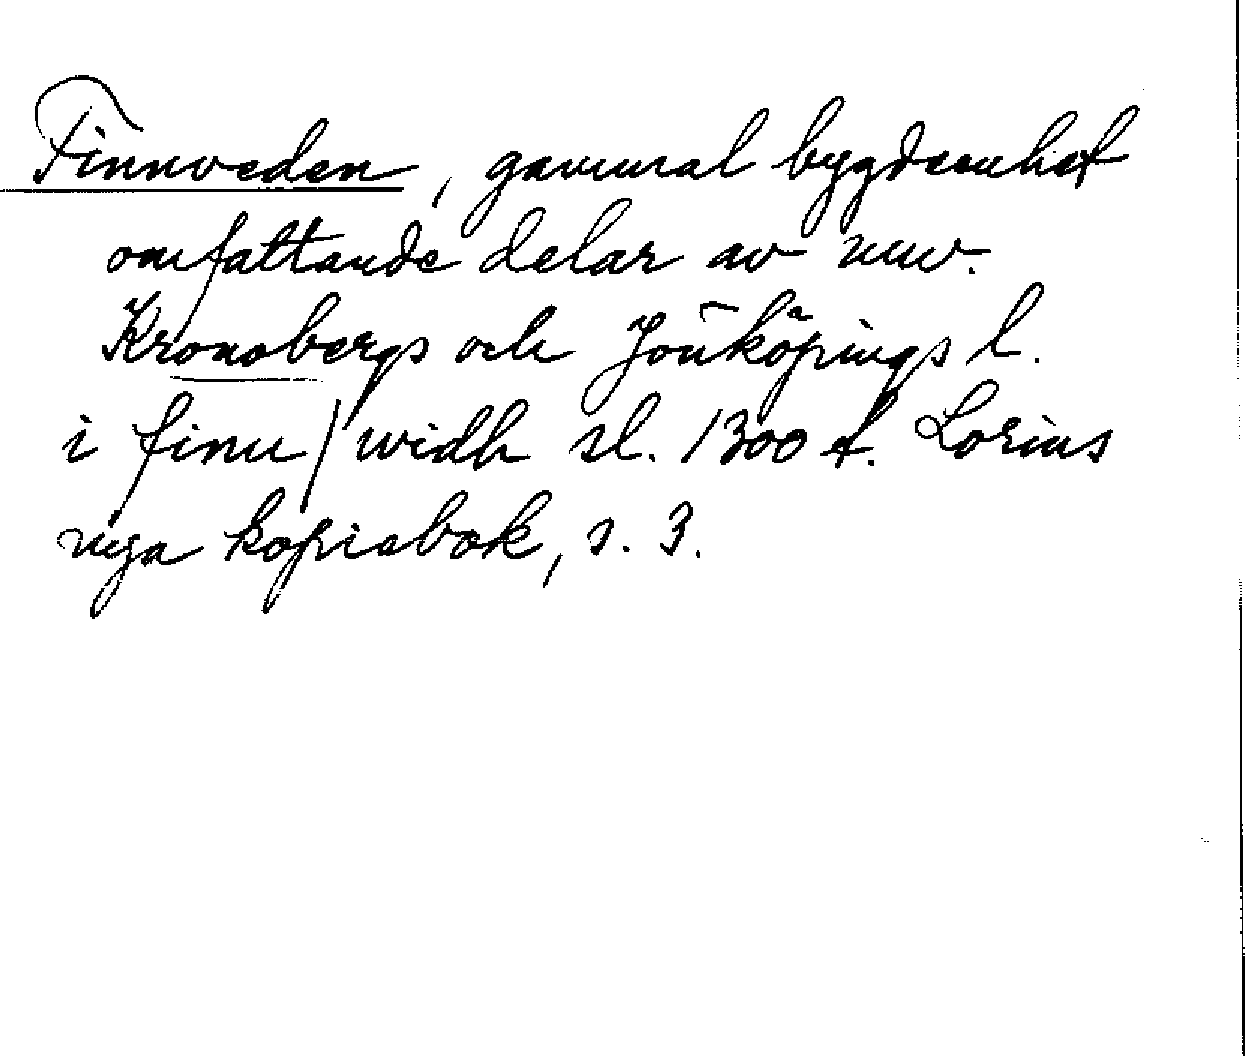 Finnveden, gammal bygdeenhet
omfattande delar av nuv.
Kronobergs och Jönköpings l.
i finn/widh sl. 1300 t. Lorins
nya kopiebok, s. 3.